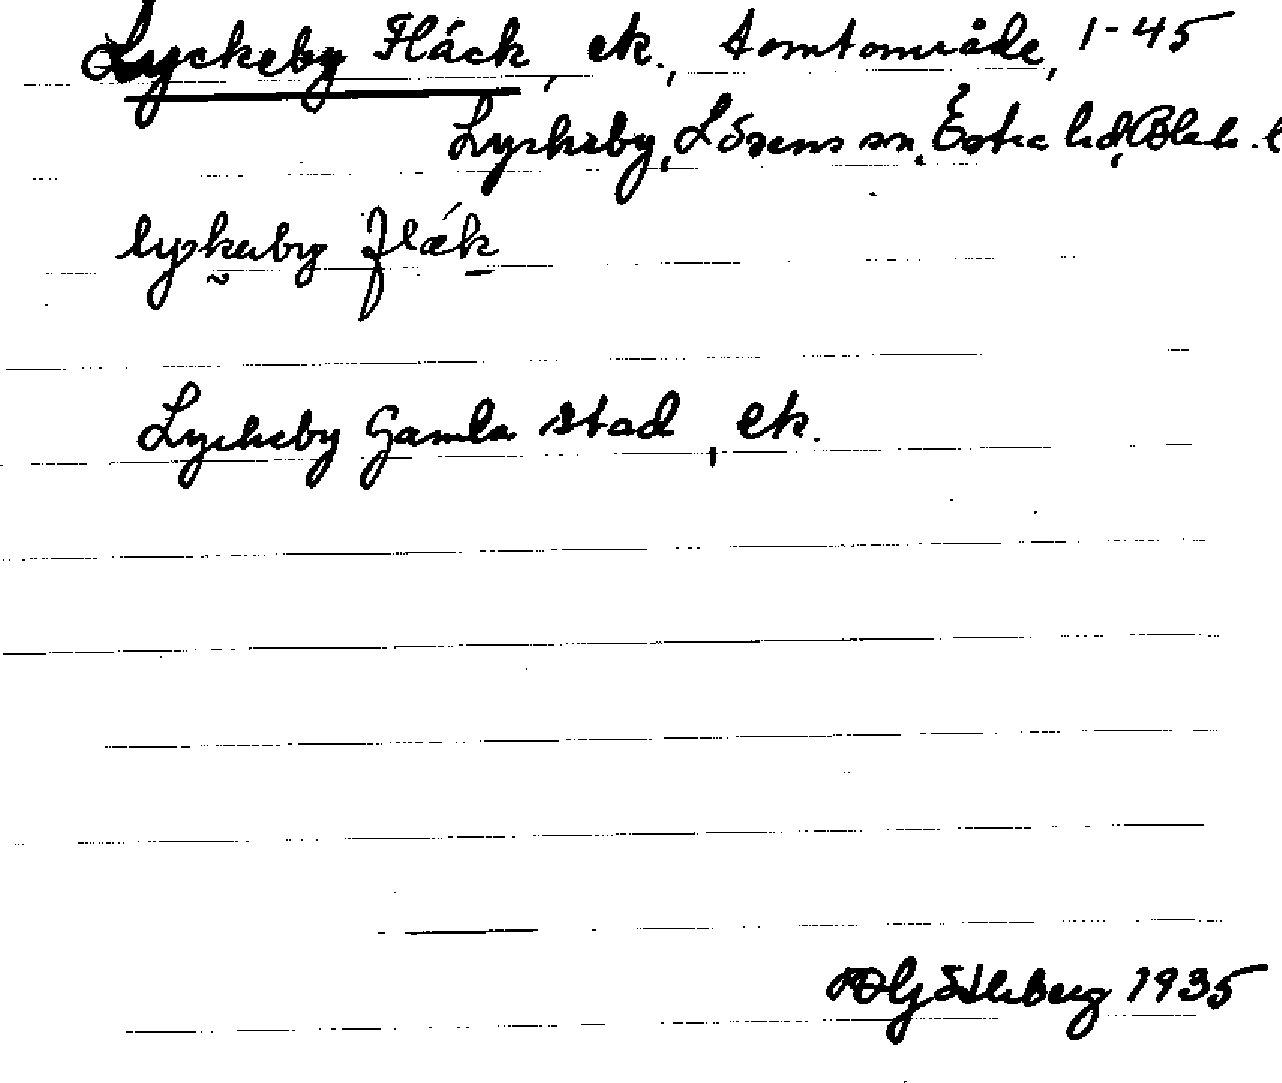 Lyckeby Fläck, ek., tomtområde, 1-45
Lyckeby, Lösens sn, Östra hd, Blek. l
lykəby flæk
Lyckeby Gamla stad, ek.
1935